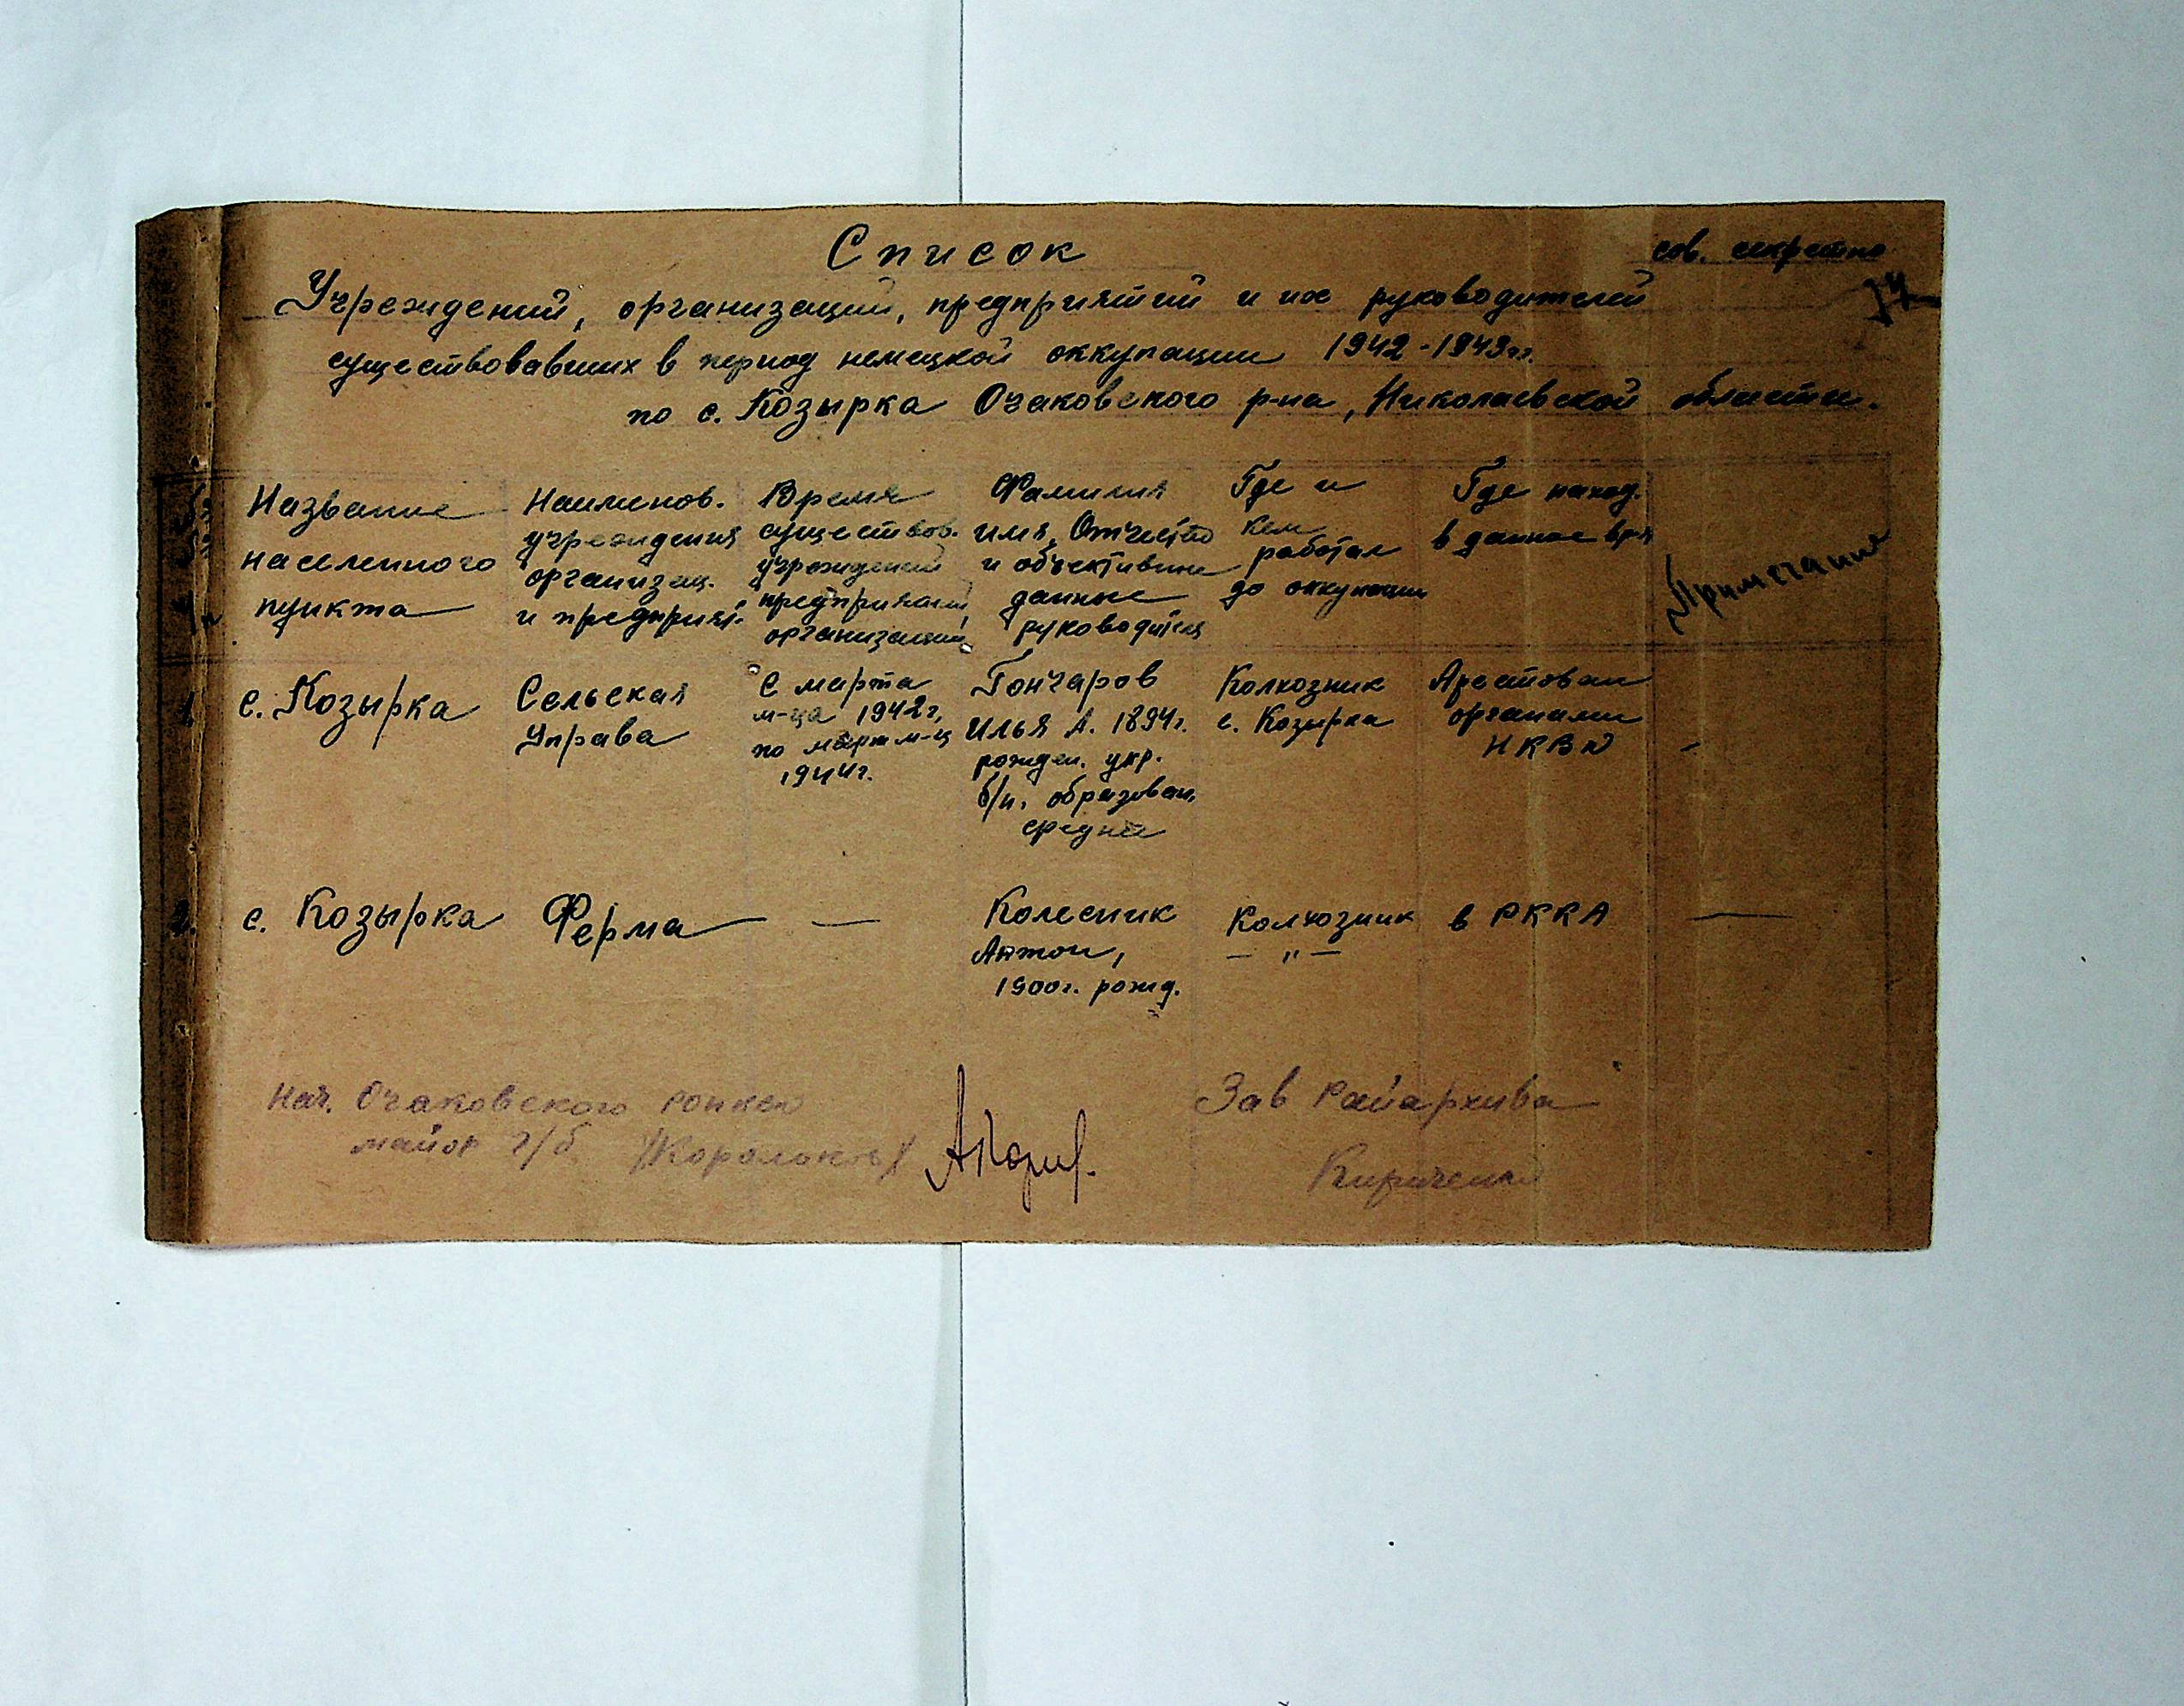 Список
сов. секретно
17
Учреждений, организаций, предприятий и их руководителей
существовавших в период немецкой оккупации 1942-1943гг.
по с. Козырка Очаковского р-на, Николаевской области.
Название
населенного
пункта
Наименов.
учреждения
организац.
и предприят.
Время
существов.
учреждений
предприятий,
организаций
Фамилия
имя, Отчество
и объективные
данные
руководителя
Где и
кем
работал
до оккупации
Где наход.
в данное вр-я
Примечание
1
с. Козырка
Сельская
Управа
С марта
м-ца 1942г,
по март м-ц
1944г.
Гончаров
Илья А. 1894г.
рожден. укр.
б/п, образован,
средне
Колхозник
с. Козырка
Арестован
органами
НКВД
-
2.
с. Козырка
Ферма
—
Колесник
Антон,
1900г. рожд.
Колхозник
— " —
в РККА
—
Нач. Очаковского РОНКВД
майор г/б
Зав Райархива
Кириченко